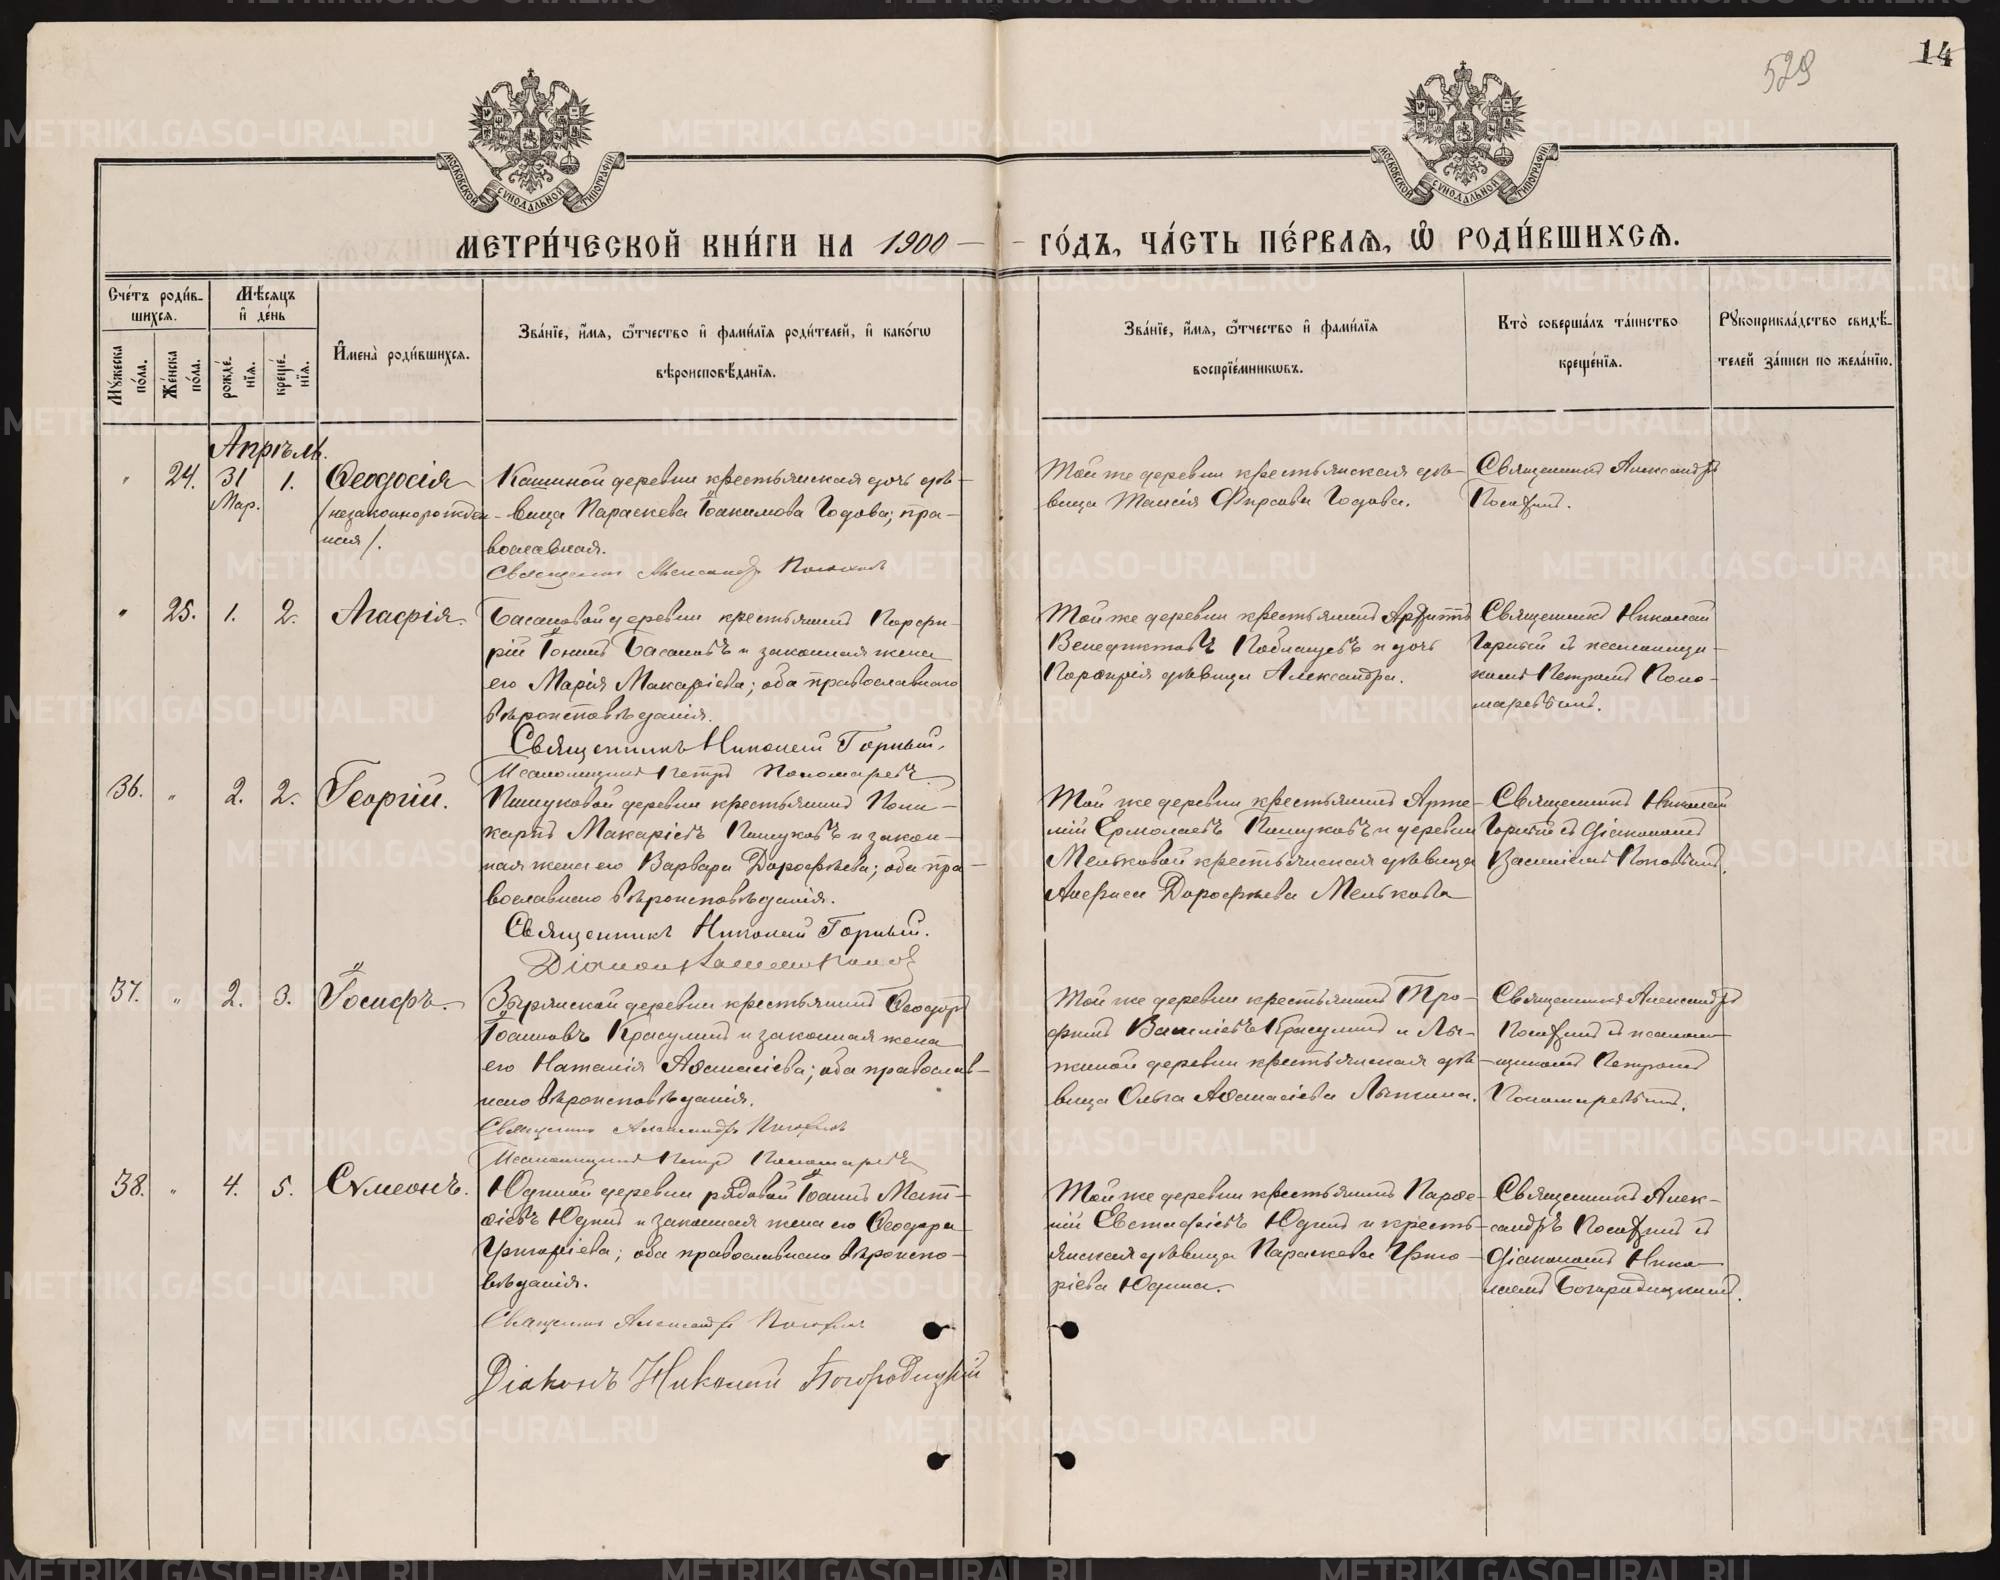 14
529
МОСКОВСКОЙ СѴНОДАЛЬНОЙ ТИПОГРАФІИ
МОСКОВСКОЙ СѴНОДАЛЬНОЙ ТИПОГРАФІИ
МЕТРИ́ЧЕСКОЙ КНИ́ГИ НА 1900 ГО́ДЪ, ЧА́СТЬ ПЕ́РВАѦ, Ѡ҆ РОДИ́ВШИХСѦ.
Сче́тъ роди́в-
шихсѧ.
Мꙋ́жеска по́ла.
Же́нска по́ла.
Мѣ́сѧцъ и҆ де́нь
рожде́-
нїѧ.
креще́-
нїѧ.
И҆мена̀ роди́вшихсѧ.
Зва́нїе, и҆́мѧ, ѻ҆́тчество и҆ фами́лїѧ роди́телей, и҆ како́гѡ
вѣроисповѣ́данїѧ.
Зва́нїе, и҆́мѧ, ѻ҆́тчество и҆ фами́лїѧ
воспрїе́мникѡвъ.
Кто̀ соверша́лъ та́инство
креще́нїѧ.
Рꙋкоприкла́дство свидѣ́-
телей за́писи по жела́нїю.
Апрѣль.
" 24. 31 Мар. 1. Ѳеодосія
/незаконнорожден-
ная/.
Кашиной деревни крестьянская дочь дѣ-
вица Параскева Іоакимова Годова; пра-
вославная.
Священникъ Александръ
Той же деревни крестьянская дѣ-
вица Таисія Фирсова Годова.
Священникъ Александръ
" 25. 1. 2. Агафія.
Басановой деревни крестьянинъ Порфи-
рій Іонинъ Басановъ и законная жена
его Марія Макаріева; оба православнаго
вѣроисповѣданія.
Священникъ Николай Горный.
Псаломщикъ Петръ Пономаревъ
Той же деревни крестьянинъ
Венедиктовъ и дочь
Порфирія дѣвица Александра.
Священникъ Николай
Горный съ псаломщи-
комъ Петромъ Поно-
маревымъ.
36. " 2. 2. Георгій.
Пишуковой деревни крестьянинъ Поли-
карпъ Макаріевъ Пишуковъ и закон-
ная жена его Варвара Дорофѣева; оба пра-
вославнаго вѣроисповѣданія.
Священникъ Николай Горный.
Діаконъ
Той же деревни крестьянинъ Арте-
мій Ермолаевъ Пишуковъ и деревни
Мельковой крестьянская дѣвица
Анфиса Дорофѣева Мелькова
Священникъ Николай
Горный съ діакономъ
Василіемъ Поповымъ.
37. " 2. 3. Іосифъ.
Зырянской деревни крестьянинъ Ѳеодоръ
Іоанновъ Красулинъ и законная жена
его Наталія Аѳанасіева; оба православ-
наго вѣроисповѣданія.
Священникъ Александръ
Псаломщикъ Петръ Пономаревъ
Той же деревни крестьянинъ Тро-
фимъ Василіевъ Красулинъ и Лы-
жиной деревни крестьянская дѣ-
вица Ольга Аѳанасіева Лыжина.
Священникъ Александръ
съ псалом-
щикомъ Петромъ
Пономаревымъ.
38. " 4. 5. Сѵмеонъ.
Юдиной деревни рядовой Іоаннъ Мат-
ѳіевъ Юдинъ и законная жена его Ѳеодора
Григоріева; оба православнаго вѣроиспо-
вѣданія.
Священникъ Александръ
Діаконъ Николай Богородицкій
Той же деревни крестьянинъ Парѳе-
ній Евстафіевъ Юдинъ и кресть-
янская дѣвица Параскева Григо-
ріева Юдина.
Священникъ Алек-
сандръ съ
діакономъ Нико-
лаемъ Богородицкимъ.
METRIKI.GASO-URAL.RU